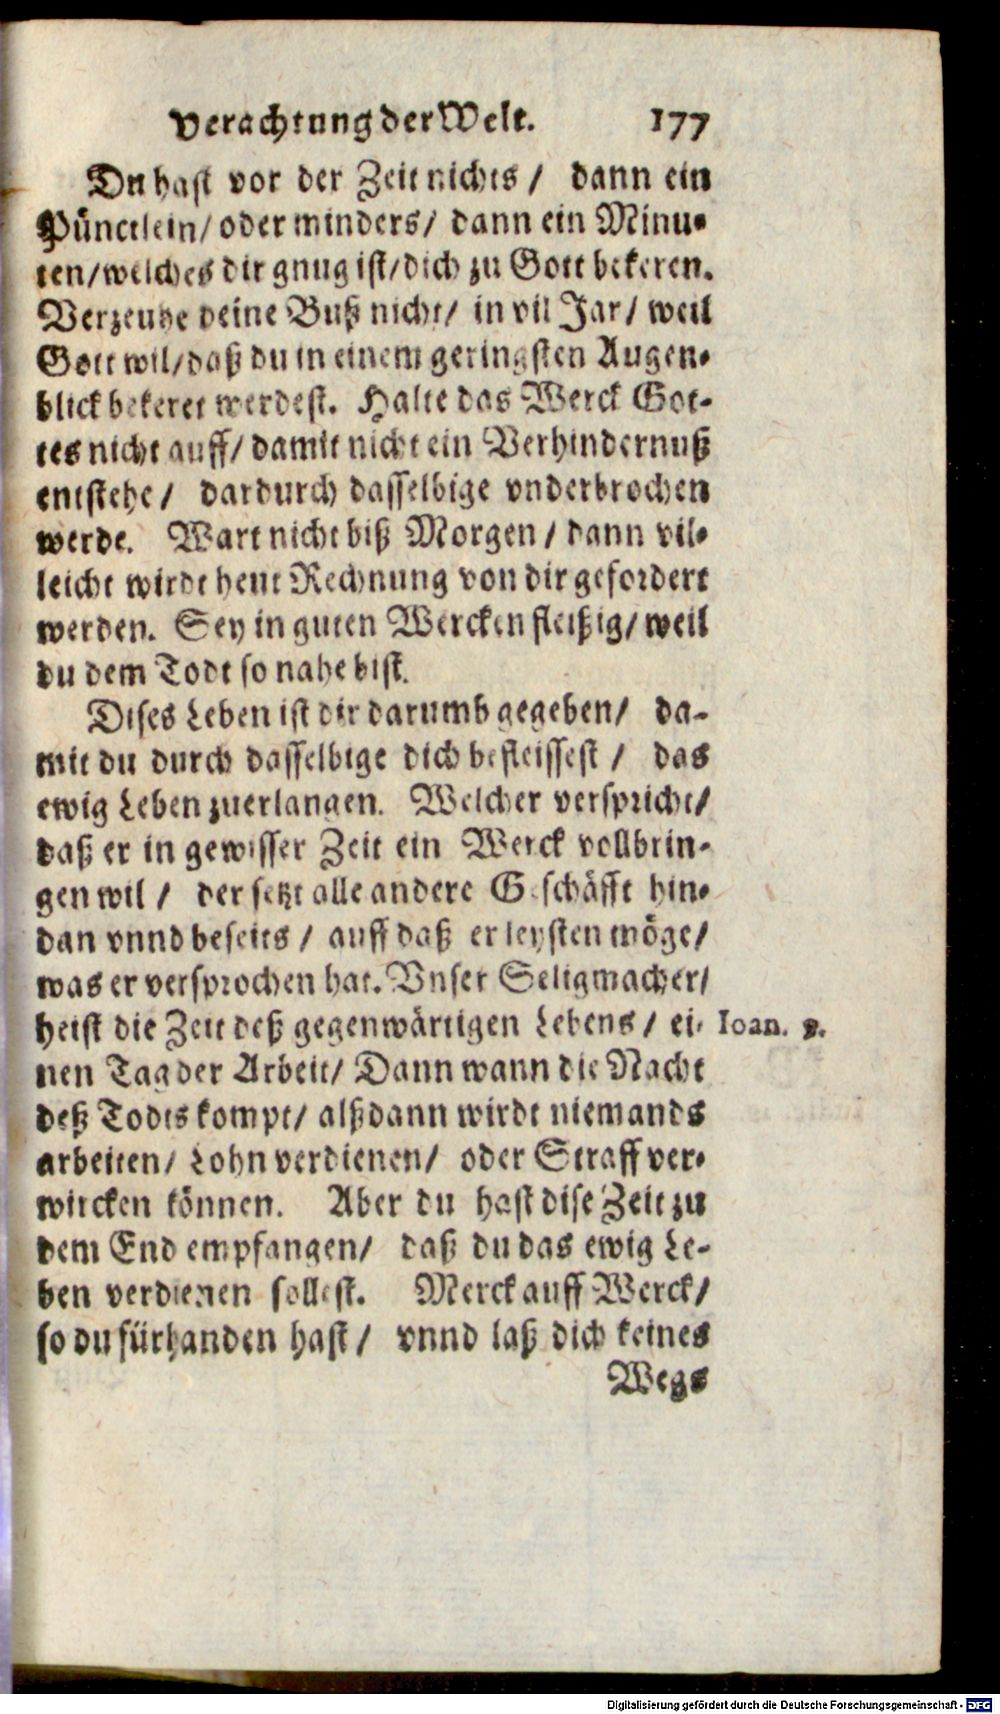 Verachtung der Welt. 177
Du hast vor der Zeit nichts / dann ein
Pünctlein / oder minders / dann ein Minu-
ten / welches dir gnug ist / dich zu Gott bekeren.
Verzeuhe deine Buß nicht / in vil Jar / weil
Gott wil / daß du in einem geringsten Augen-
blick bekeret werdest. Halte das Werck Got-
tes nicht auff / damit nicht ein Verhindernuß
entstehe / dardurch dasselbige vnderbrochen
werde. Wart nicht biß Morgen / dann vil-
leicht wirdt heut Rechnung von dir gefordert
werden. Sey in guten Wercken fleißig / weil
du dem Todt so nahe bist.
Dises Leben ist dir darumb gegeben / da-
mit du durch dasselbige dich befleissest / das
ewig Leben zuerlangen. Welcher verspricht /
daß er in gewisser Zeit ein Werck vollbrin-
gen wil / der setzt alle andere Geschäfft hin-
dan vnnd beseits / auff daß er leysten möge /
was er versprochen hat. Vnser Seligmacher /
heist die Zeit deß gegenwärtigen Lebens / ei- Ioan. 9.
nen Tag der Arbeit / Dann wann die Nacht
deß Todts kompt / alßdann wirdt niemands
arbeiten / Lohn verdienen / oder Straff ver-
wircken können. Aber du hast dise Zeit zu
dem End empfangen / daß du das ewig Le-
ben verdienen sollest. Merck auff Werck /
so du fürhanden hast / vnnd laß dich keines
Wegs
Digitalisierung gefördert durch die Deutsche Forschungsgemeinschaft - DFG